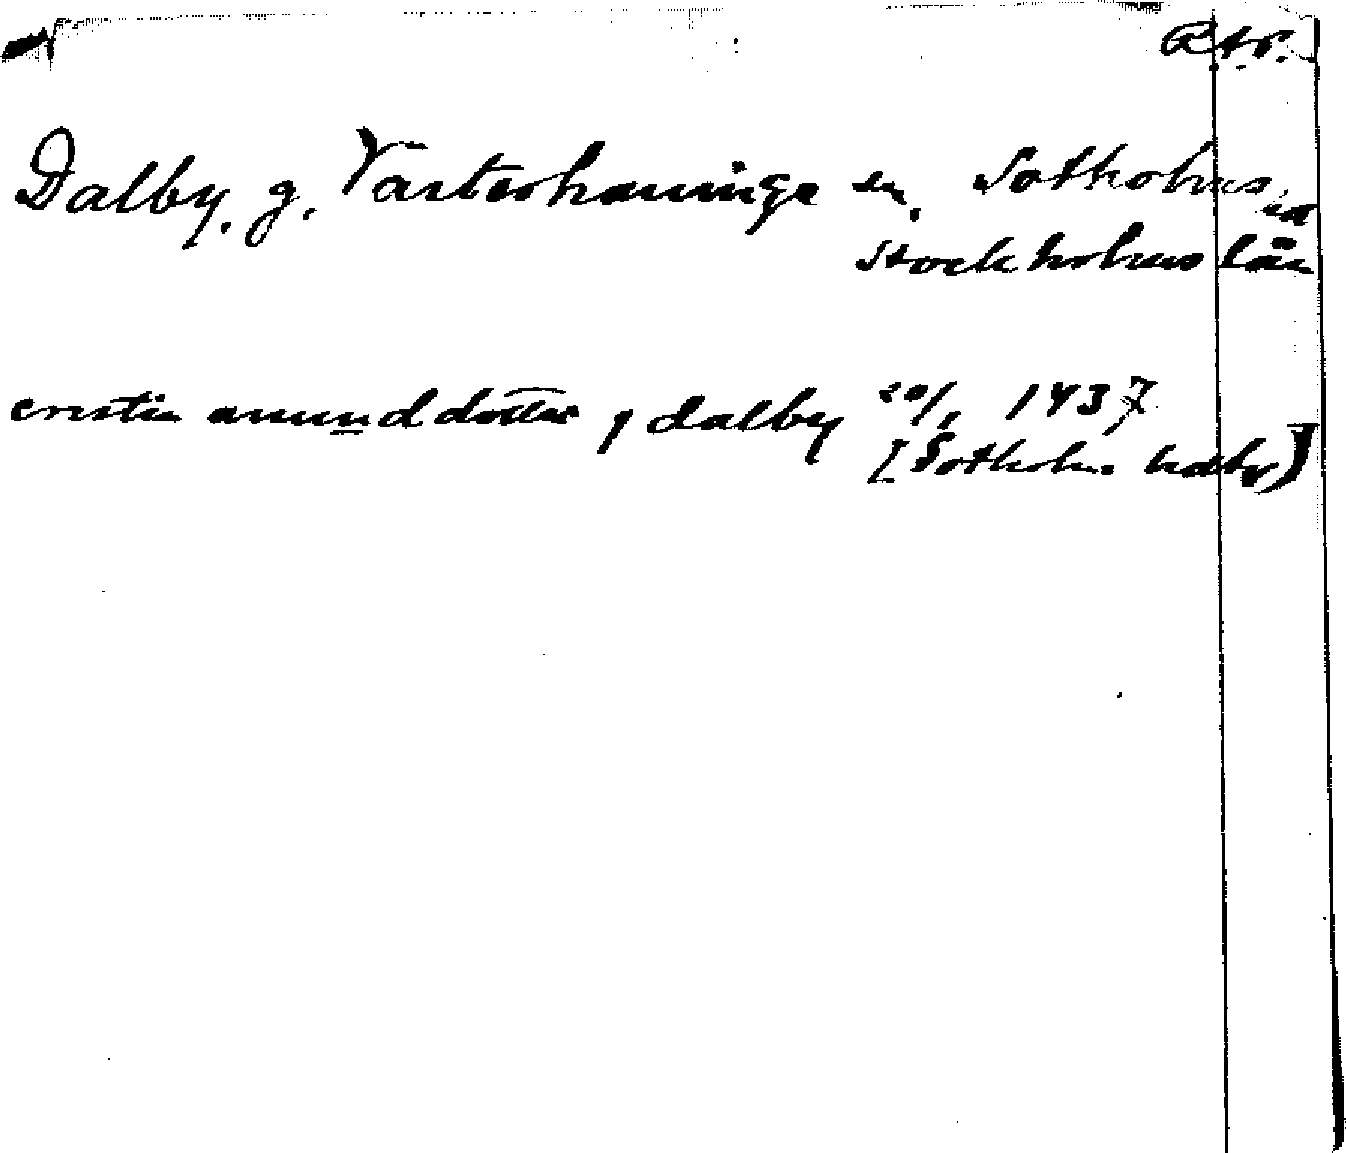 R.A.P.
Dalby, g. Västerhaninge sn, Sotholms hd
Stockholms län
cristin amund dotter j dalby 20/1 1437
[Sotholms hdbr]